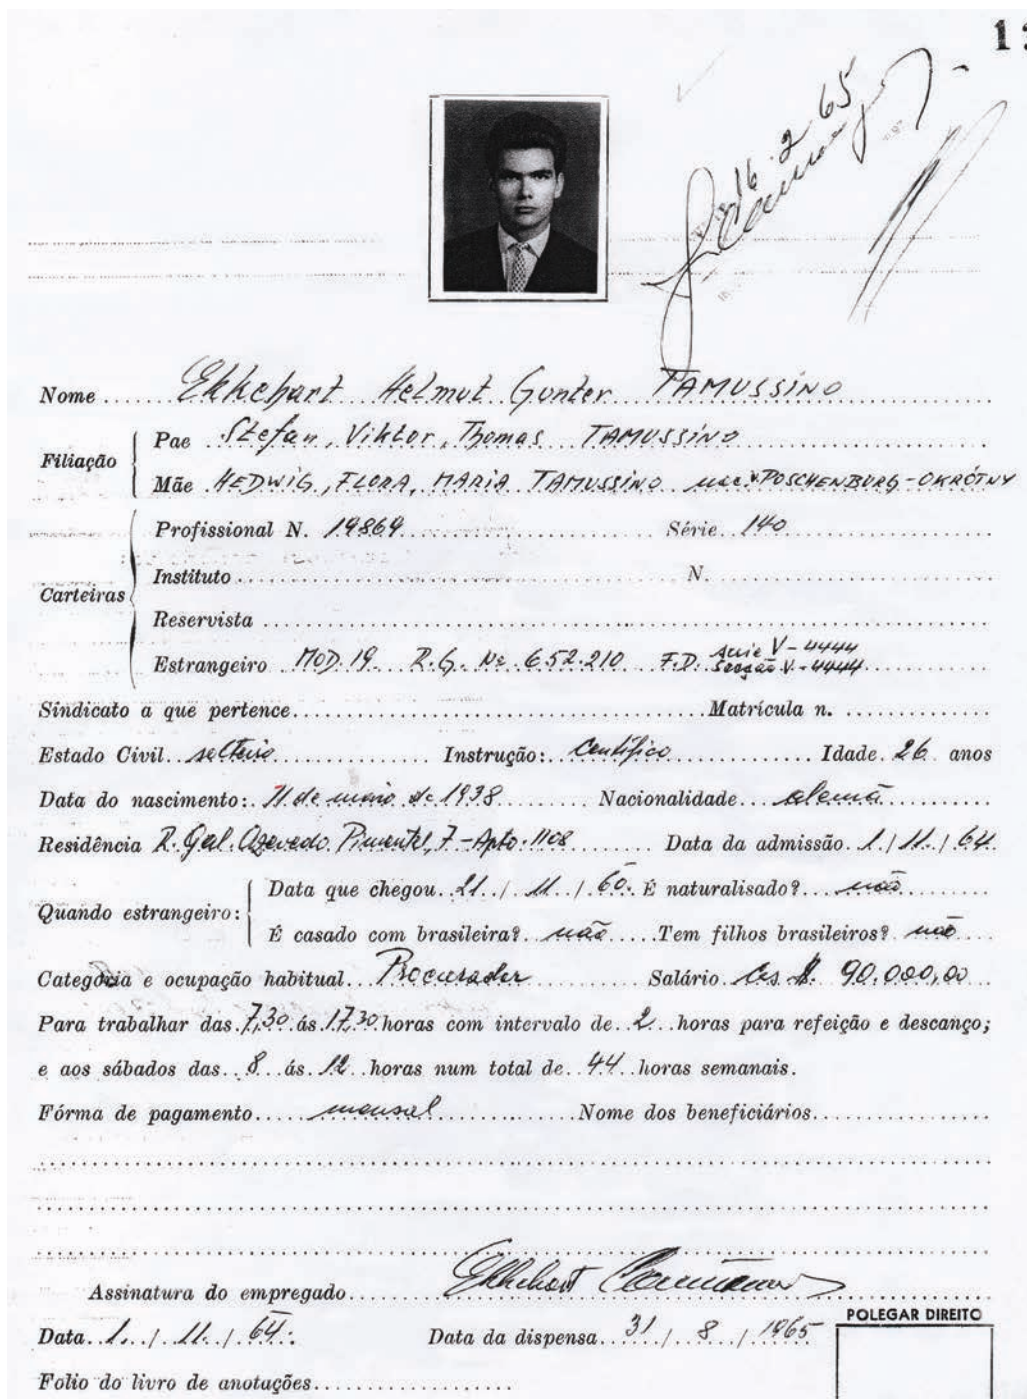 13
16.2.65
Nome ...... Ekkehart Helmut Gunter TAMUSSINO
Filiação
Pae Stefan, Viktor, Thomas TAMUSSINO
Mãe HEDWIG, FLORA, MARIA TAMUSSINO POSCHENBURG-OKRÓTNY
Carteiras
Profissional N. 19864 Série 140
Instituto N.
Reservista
Estrangeiro MOD. 19 R.G. Nº 652.210 F.D. V-4444
V-4444
Sindicato a que pertence Matrícula n.
Estado Civil solteiro Instrução: Científico Idade 26 anos
Data do nascimento: 11 de maio de 1938 Nacionalidade alemã
Residência R. Gal. Azevedo Pimentel, 7 - Apto. 1108 Data da admissão 1 / 11 / 64
Quando estrangeiro:
Data que chegou 21 / 11 / 60. É naturalisado? não
É casado com brasileira? não Tem filhos brasileiros? não
Categoria e ocupação habitual Procurador Salário Crs $ 90.000,00
Para trabalhar das 7,30 ás 17,30 horas com intervalo de 2 horas para refeição e descanço;
e aos sábados das 8 ás 12 horas num total de 44 horas semanais.
Fórma de pagamento mensal Nome dos beneficiários
Assinatura do empregado Ekkehart
Data 1 / 11 / 64. Data da dispensa 31 / 8 / 1965
POLEGAR DIREITO
Folio do livro de anotações